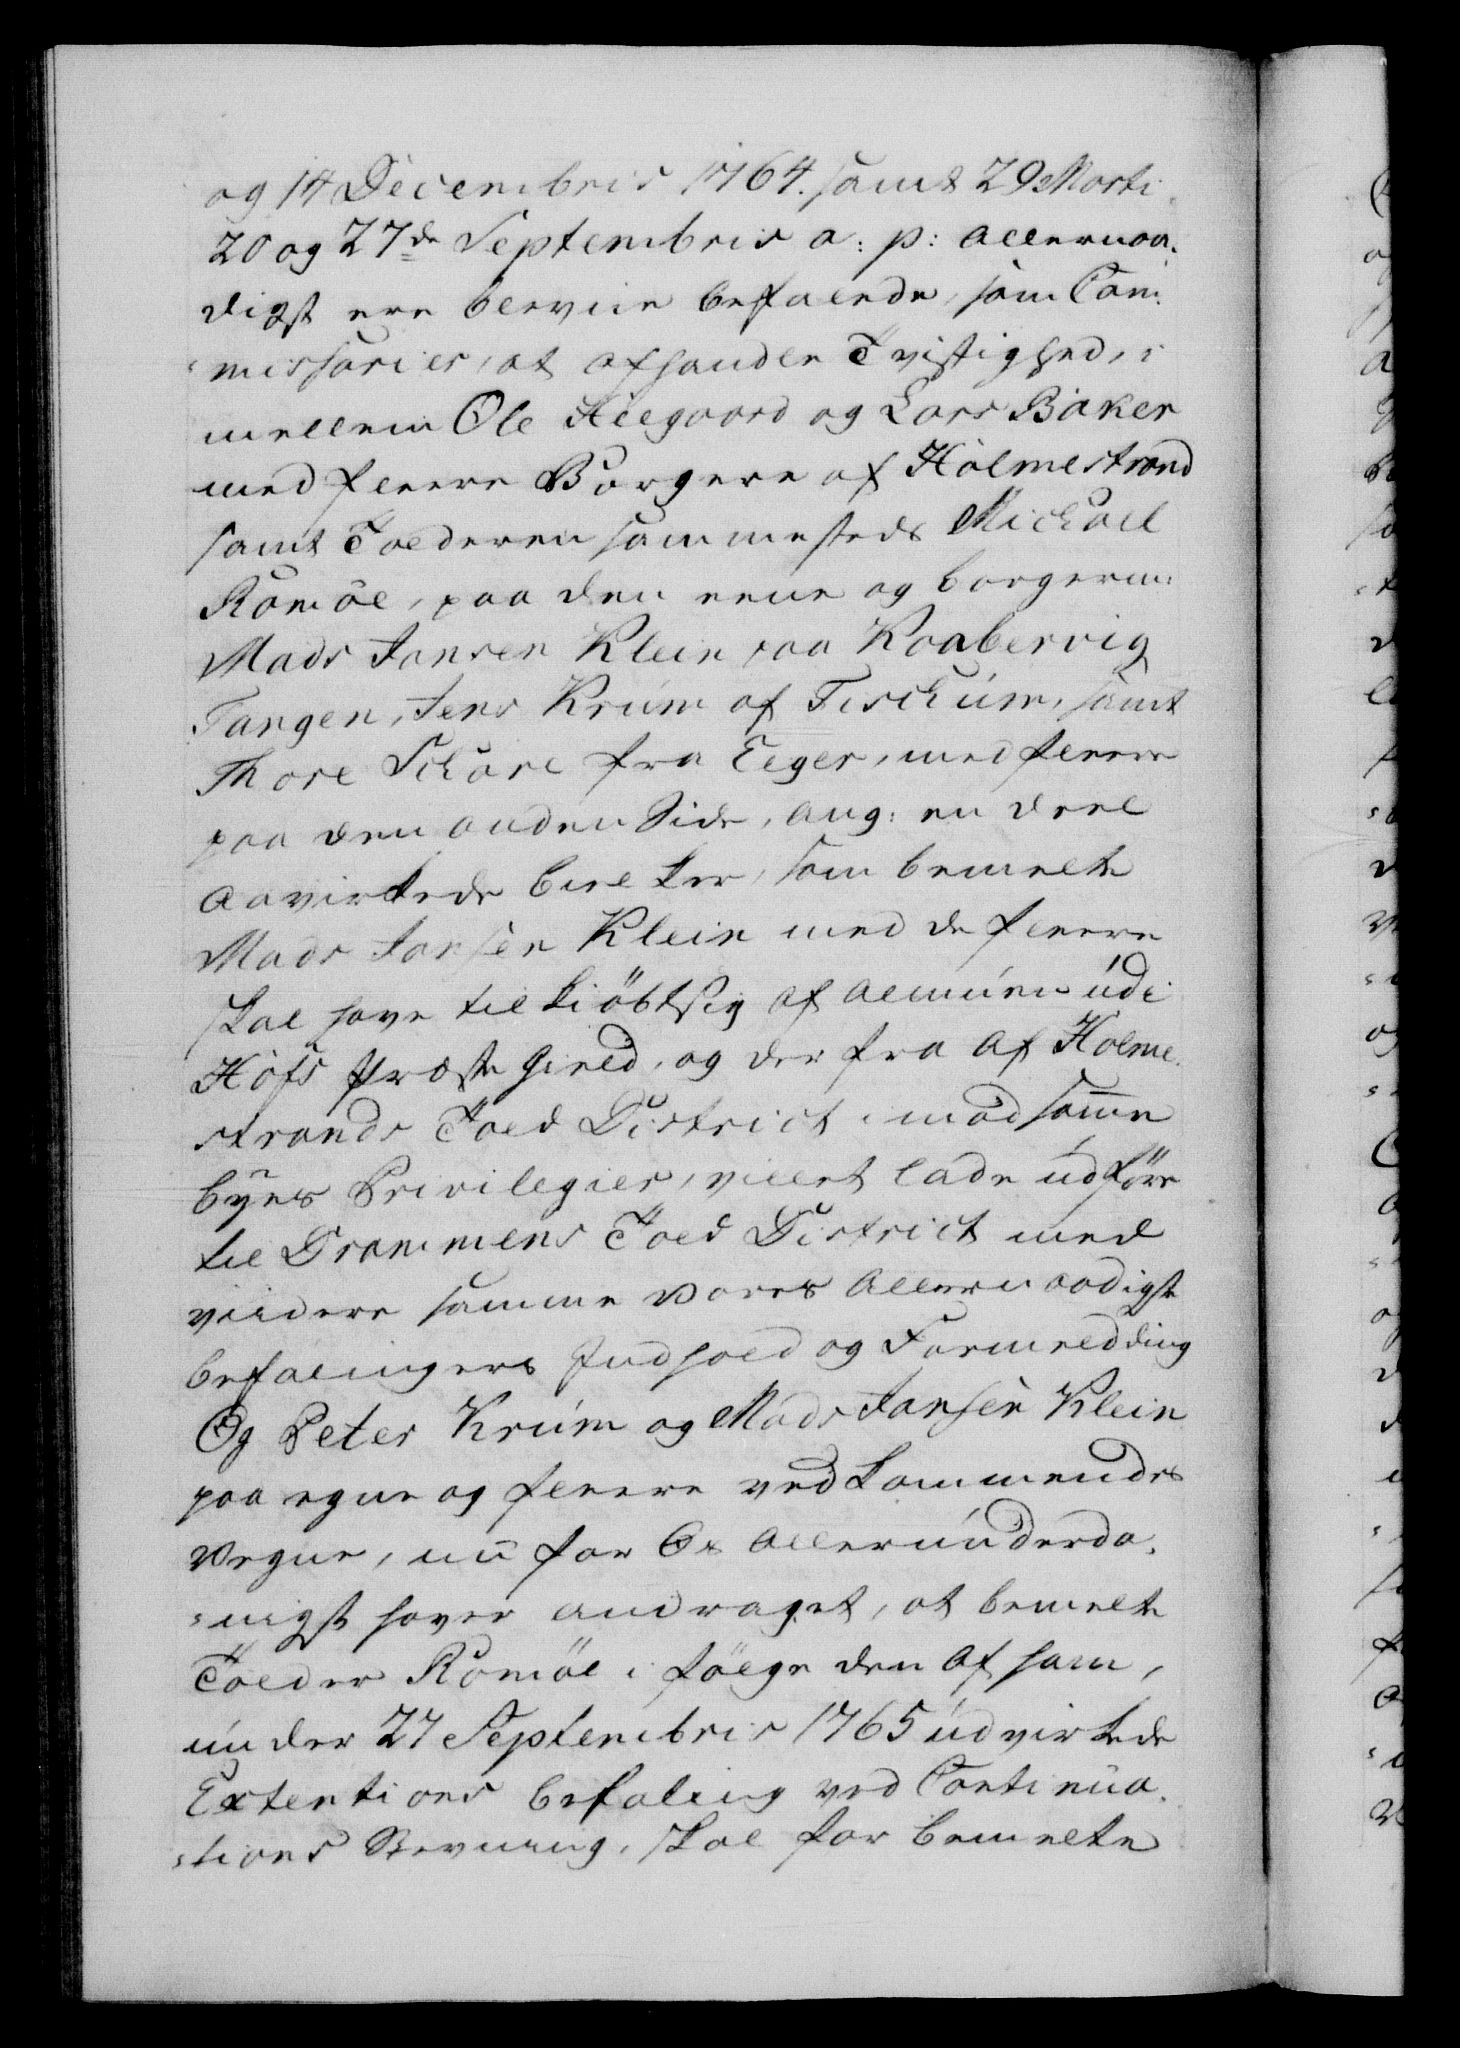 og 14 Decembris 1764. samt 29 Marti
20 og 27de Septembris a: p: allernaa-
digst ere blevne befalede, som Com-
missarier, at afhandle Tvistighed, i
mellem Ole Aaegaard og Lars Baker
med fleere Borgere af Holmestrand
samt Tolderen sammesteds Michael
Römöe, paa den eene og borgerm:
Mads Jansen Klein paa Kaabervig
Tangen, Jens Krüm af Fischum, samt
Thore Schare fra Eeger, med fleere
paa den anden Side, ang: en deel
aavirkede Bielker, som bemelte
Mads Jansen Klein med de fleere
skal have tilkiöbt sig af almuen udi
Hofs Præste Gield, og der fra af Holme-
strands Told District imod samme
byes Privilegier, villet lade udföre
til Drammens Told District med
viidere samme Vores allernaadigste
befalingers Indhold og Formelding
Og Peter Krüm og Mads Jansen Klein
paa egne og fleere vedkommendes
Vegne, nu for Os allerunderda-
nigst haver andraget, at bemelte
Tolder Römöe i fölge den af ham,
under 27 Septembris 1765 udvirkede
Extentions befaling ved Continua-
tions Stevning, skal for bemelte